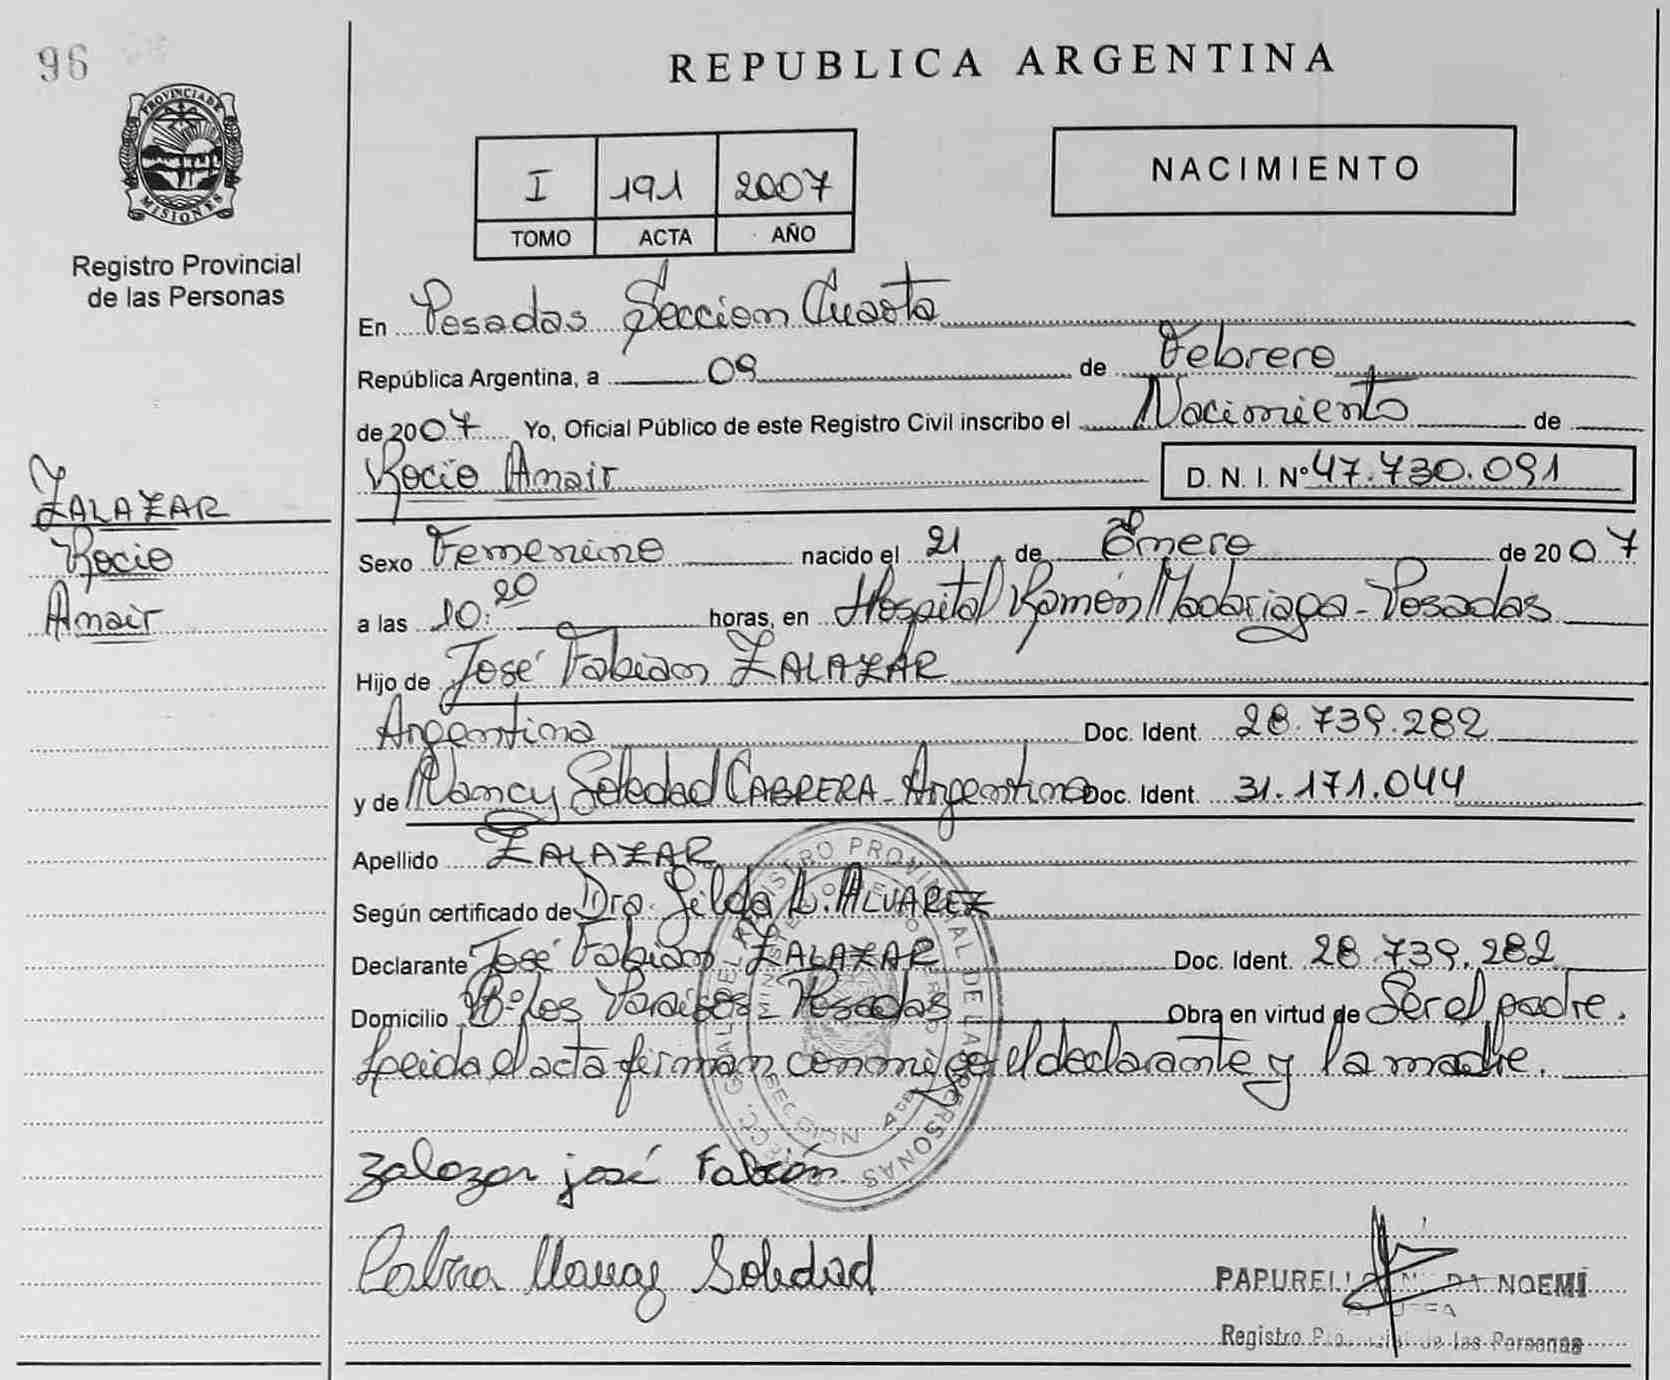 96
REPUBLICA ARGENTINA
PROVINCIA DE
MISIONES
Registro Provincial
de las Personas
I 191 2007
TOMO ACTA AÑO
NACIMIENTO
En Posadas Seccion Cuarta
República Argentina, a 09 de Febrero
de 2007 Yo, Oficial Público de este Registro Civil inscribo el Nacimiento de
Rocio Anair D. N. I. Nº 47.730.091
ZALAZAR
Rocio
Anair
Sexo Femenino nacido el 21 de Enero de 2007
a las 10:20 horas, en Hospital Ramón Madariaga - Posadas
Hijo de José Fabian ZALAZAR
Argentina Doc. Ident. 28.739.282
y de Nancy Soledad CABRERA - Argentina Doc. Ident. 31.171.044
Apellido ZALAZAR
Según certificado de Dra. Gilda L. ALVAREZ
Declarante José Fabian ZALAZAR Doc. Ident. 28.739.282
Domicilio Bº los Paraisos - Posadas Obra en virtud de Ser el padre.
Leida el acta firman conmigo el declarante y la madre.
Zalazar josé Fabián
Soledad
PAPUREL NOEMÍ
Registro Provincial de las Personas